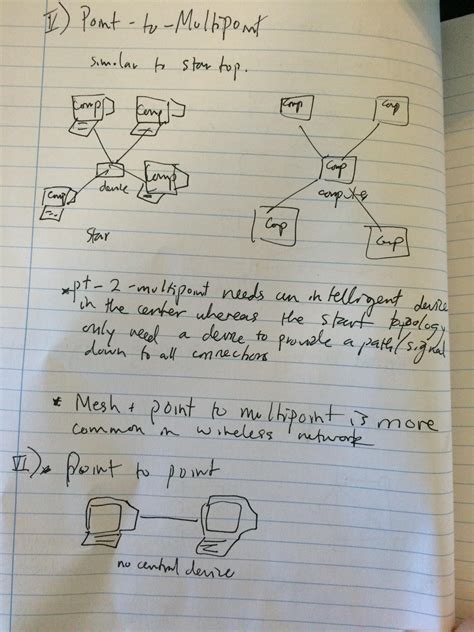 V) Point-to-Multipoint
similar to star top.
Comp
Comp
Comp
Comp
device
Star
Comp
Comp
Comp
Comp
Comp
*pt-2-multipoint needs an intelligent device
in the center whereas the start typology
only need a device to provide a path/signal
down to all connections
* Mesh + point to multipoint is more
common in wireless network
VI)* Point to point
no central device